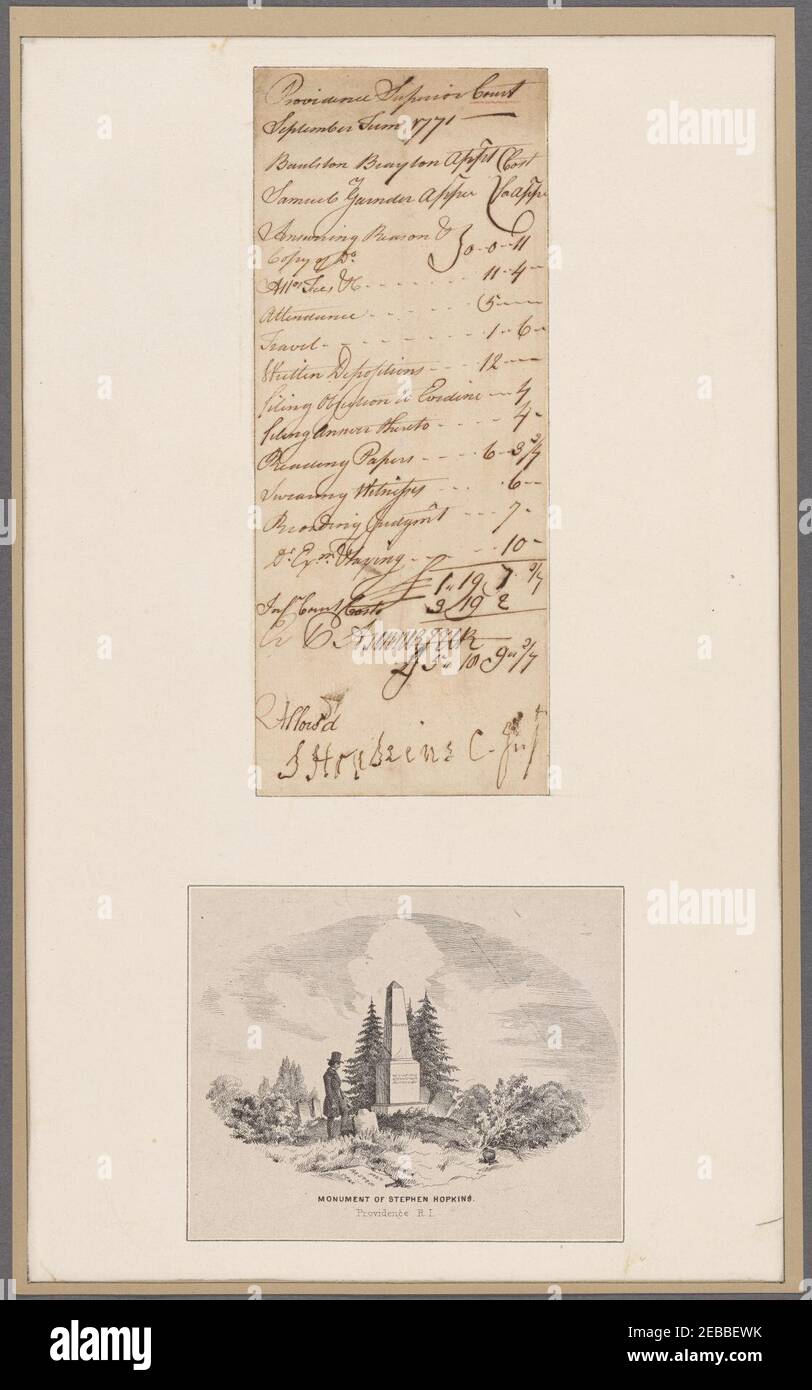 Providence Superior Court
September Term 1771
Baulston Brayton Appt Cost
Samuel Gardner Appee So Appee
Answering Reason &
Copy of Do 0-0-11
Attos Fees &c 11-4-
Attendance 5
Travel 1-6-
Written Depositions 12
filing Objection to Evidence 4
filing Answer thereto 4-
Reading Papers 6-3 3/7
Swearing Witnesses 6
Recording Judgmt 7-
Do Exn Staying 10-
£ 1"19"7 3/7
Infr Court Costs 3 19 2
£ 5"18 9" 3/7
Allow'd
S Hopkins C. Just
MONUMENT OF STEPHEN HOPKINS.
Providence R. I.
alamy
alamy
alamy
alamy
alamy
Image ID: 2EBBEWK
www.alamy.com